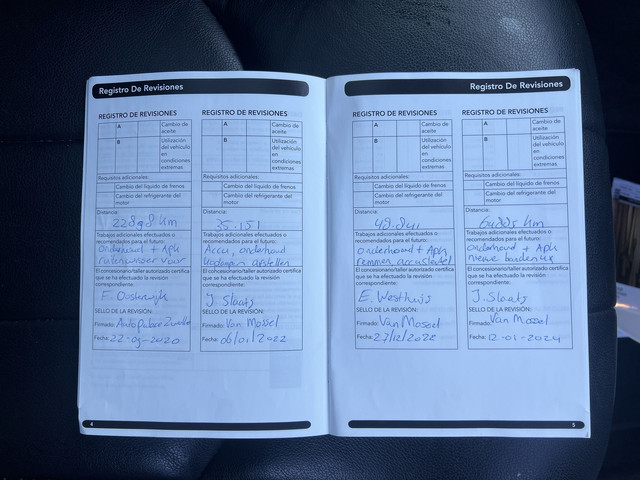 Registro De Revisiones
REGISTRO DE REVISIONES
A
Cambio de
aceite
B
Utilización
del vehículo
en
condiciones
extremas
Requisitos adicionales:
Cambio del líquido de frenos
Cambio del refrigerante del
motor
Distancia:
Km
Trabajos adicionales efectuados o
recomendados para el futuro:
onderhoud + Apk
voor
El concesionario/taller autorizado certifica
que se ha realizado la revisión
correspondiente:
SELLO DE LA REVISIÓN:
Firmado:
Fecha: 22-09-2020
REGISTRO DE REVISIONES
A
Cambio de
aceite
B
Utilización
del vehículo
en
condiciones
extremas
Requisitos adicionales:
Cambio del líquido de frenos
Cambio del refrigerante del
motor
Distancia:
35.151
Trabajos adicionales efectuados o
recomendados para el futuro:
Accu, onderhoud
El concesionario/taller autorizado certifica
que se ha realizado la revisión
correspondiente:
J. Slaats
SELLO DE LA REVISIÓN:
Firmado: Van Mossel
Fecha: 06/01/2022
4
Registro De Revisiones
REGISTRO DE REVISIONES
A
Cambio de
aceite
B
Utilización
del vehículo
en
condiciones
extremas
Requisitos adicionales:
Cambio del líquido de frenos
Cambio del refrigerante del
motor
Distancia:
48.841
Trabajos adicionales efectuados o
recomendados para el futuro:
onderhoud + Apk,
remmen,
El concesionario/taller autorizado certifica
que se ha realizado la revisión
correspondiente:
E. Westhuis
SELLO DE LA REVISIÓN:
Firmado: Van Mossel
Fecha: 27/12/2022
REGISTRO DE REVISIONES
A
Cambio de
aceite
B
Utilización
del vehículo
en
condiciones
extremas
Requisitos adicionales:
Cambio del líquido de frenos
Cambio del refrigerante del
motor
Distancia:
Km
Trabajos adicionales efectuados o
recomendados para el futuro:
onderhoud + Apk
nieuwe banden 4x
El concesionario/taller autorizado certifica
que se ha realizado la revisión
correspondiente:
J. Slaats
SELLO DE LA REVISIÓN:
Firmado: Van Mossel
Fecha: 12-01-2024
5